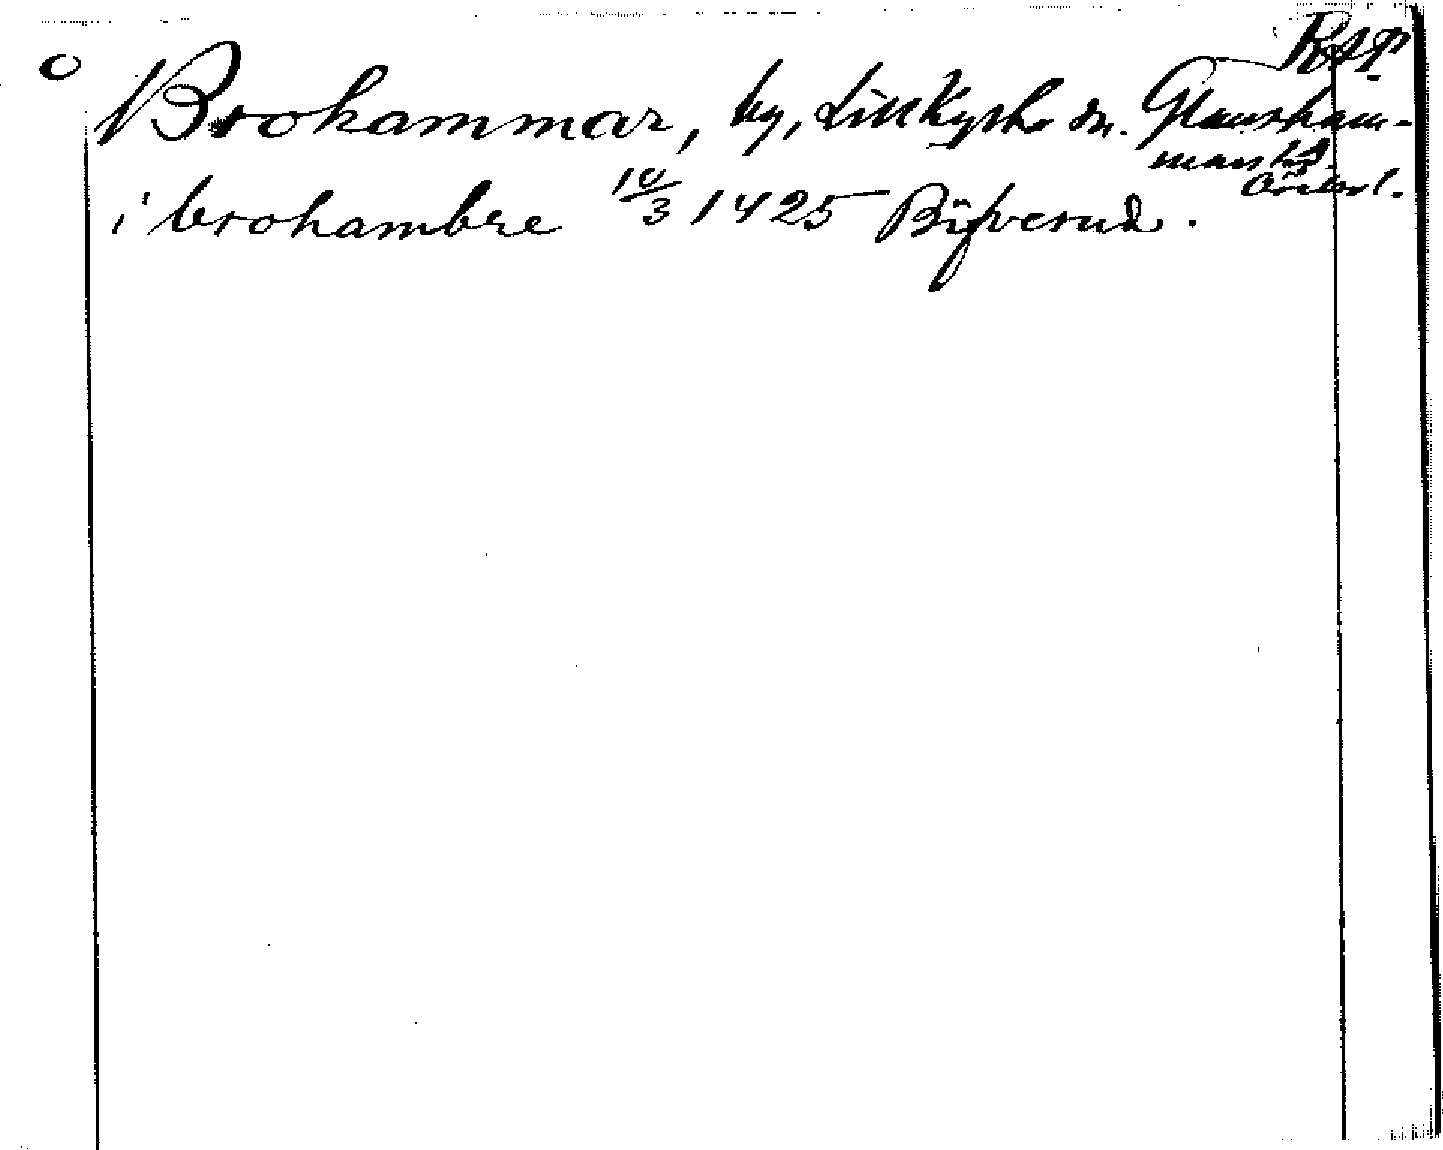 RAP
Brohammar, by, Lillkyrka sn. Glansham-
mars hd.
Örebro l.
i brohambre 10/3 1425 Bifverud.